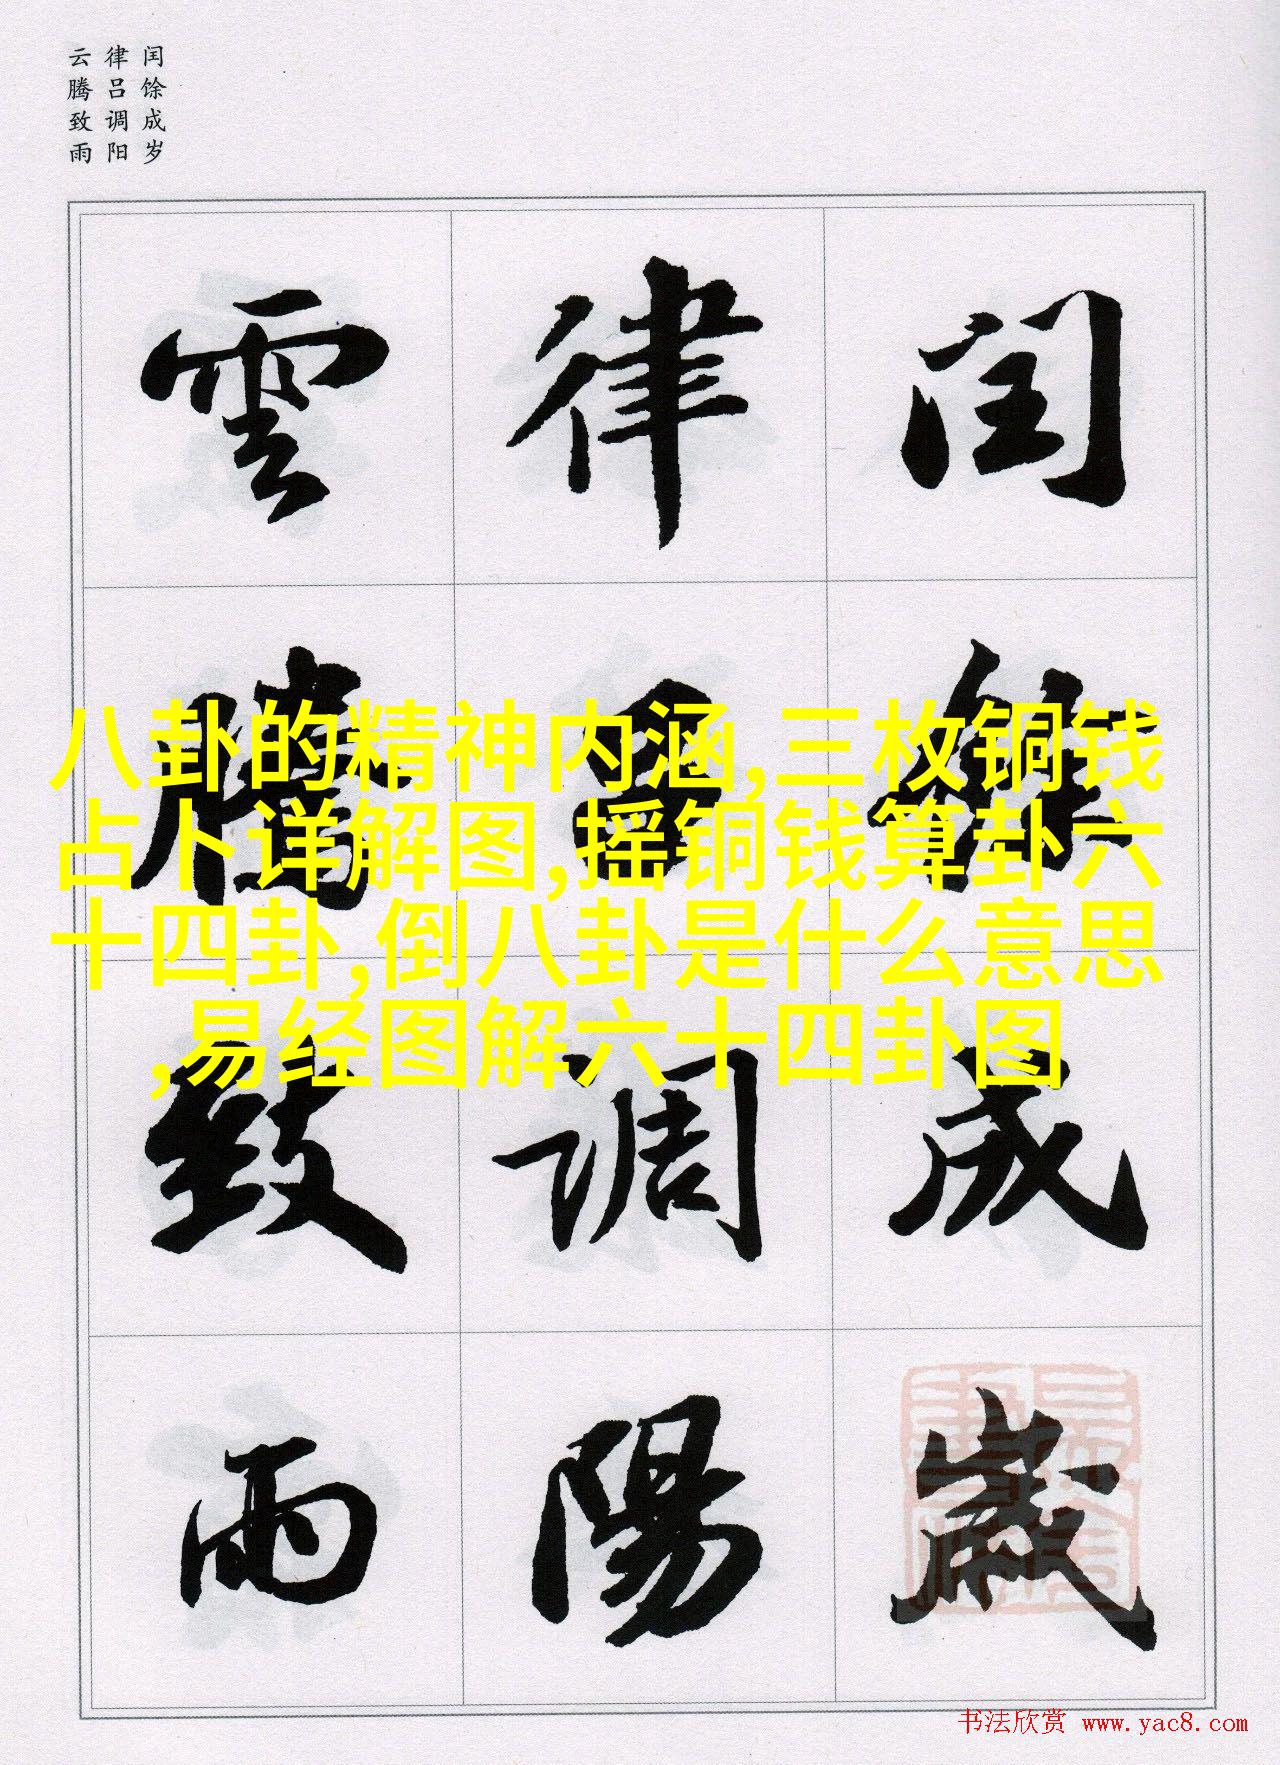 闰馀成岁
律吕调阳
云腾致雨
閏餘成歲
律吕調陽
雲騰致雨
八卦的精神内涵,三枚铜钱
占卜详解图,摇铜钱算卦六
十四卦,倒八卦是什么意思
,易经图解六十四卦图
书法欣赏 www.yac8.com